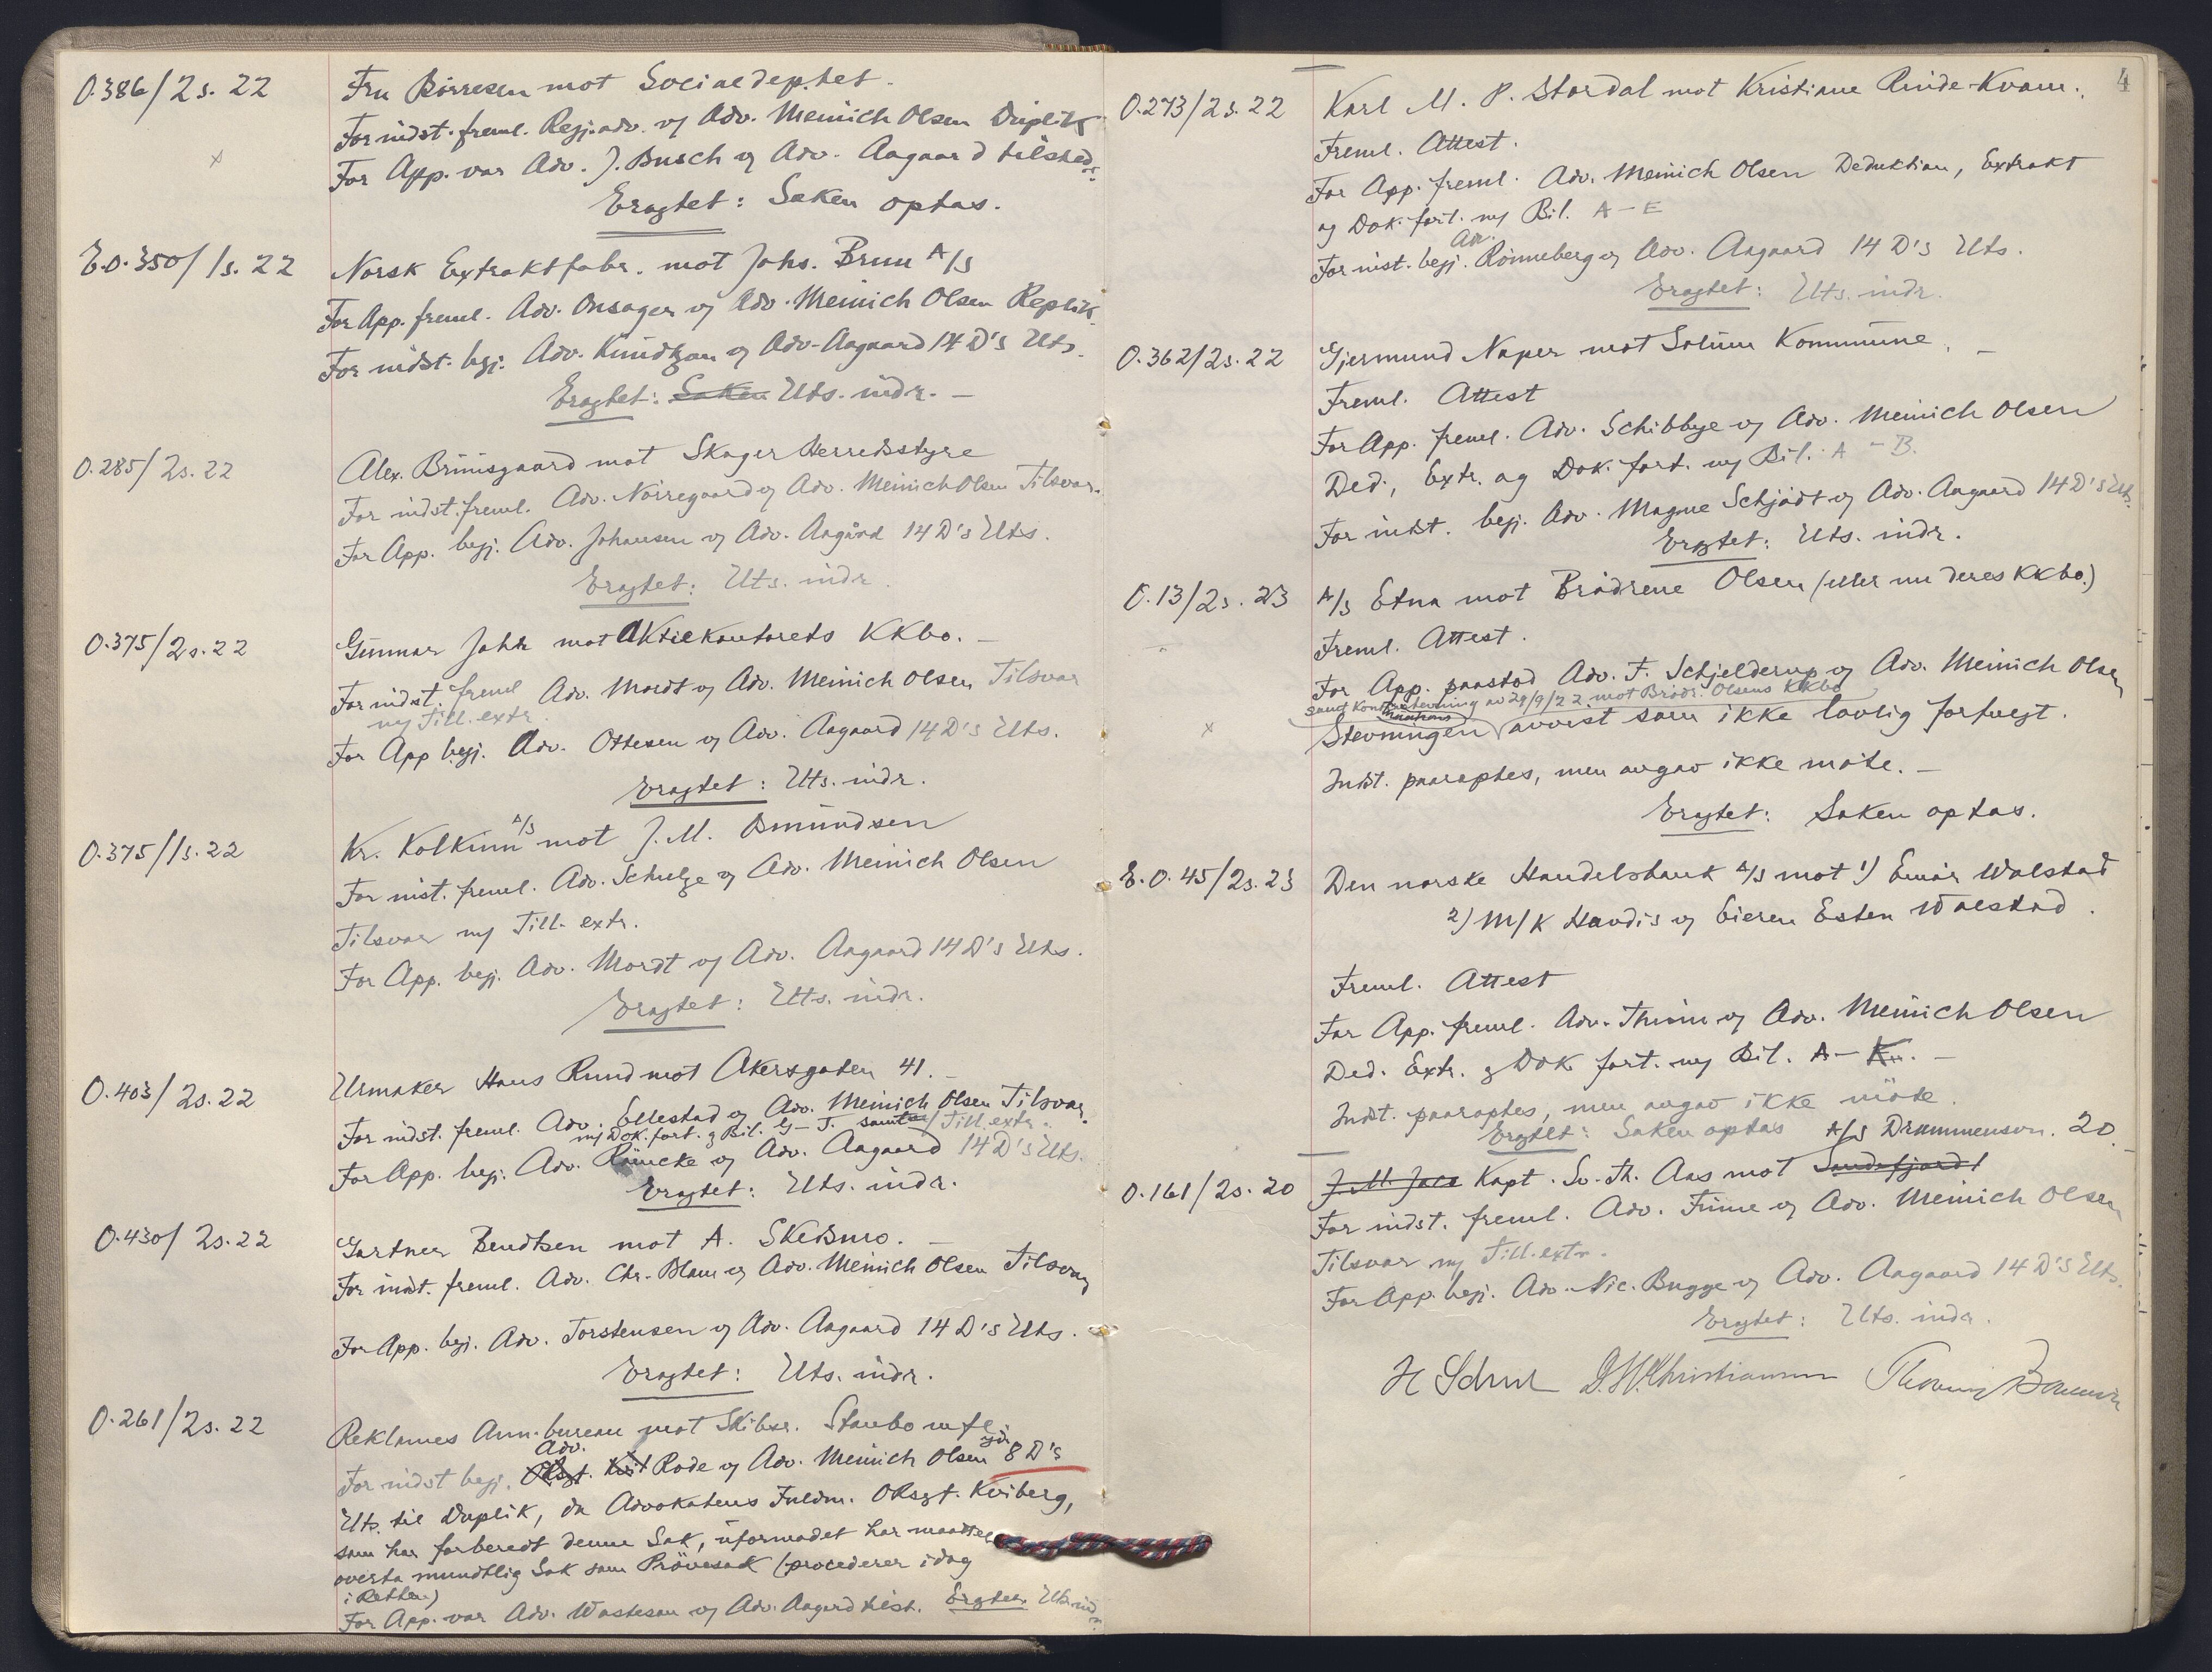 O.386/2s. 22
Fru Börresen mot Socialdep.tet.
For indst. freml. Regj.adv. og Adv. Meinich Olsen Duplik
For App. var Adv. J. Busch og Adv. Aagaard tilstede.
x
Eragtet: Saken optas.
E.O.350/1s. 22
Norsk Extraktfabr. mot Johs. Bruu A/S
For App. freml. Adv. Onsager og Adv. Meinich Olsen Replik
For indst. begj. Adv. Knudtzon og Adv. Aagaard 14 D's Uts.
Eragtet: Saken Uts. indr. —
O.285/2s. 22
Alex. Briinsgaard mot Skoger Herredsstyre
For indst. freml. Adv. Nörregaard og Adv. Meinich Olsen Tilsvar.
For App. begj. Adv. Johansen og Adv. Aagård 14 D's Uts.
Eragtet: Uts. indr.
O.375/2s. 22
Gunnar Jahn mot Aktiekontorets KKbo. —
For indst. freml Adv. Mordt og Adv. Meinich Olsen Tilsvar
m/ Till. extr.
For App begj. Adv. Ottesen og Adv. Aagaard 14 D's Uts.
Eragtet: Uts. indr.
O.375/1s. 22
Kr. Kolkinn A/S mot J. M. Osmundsen
For inst. freml. Adv. Schulze og Adv. Meinich Olsen
Tilsvar m/ Till. extr.
For App. begj. Adv. Mordt og Adv. Aagaard 14 D's Uts.
Eragtet: Uts. indr.
O.403/2s. 22
Urmaker Hans Rund mot Akersgaten 41. —
For indst. freml. Adv. Ellestad og Adv. Meinich Olsen Tilsvar
m/ Dok. fort. & Bil. G – J. samt m/ Till. extr.
For App. begj. Adv. Räncke og Adv. Aagaard 14 D's Uts.
Eragtet: Uts. indr.
O.430/2s. 22
Gartner Bendtsen mot A. Skedsmo. —
For indst. freml. Adv. Chr. Blom og Adv. Meinich Olsen Tilsvar
For App. begj. Adv. Torstensen og Adv. Aagaard 14 D's Uts.
Eragtet: Uts. indr.
O.261/2s. 22
Reklames Ann. bureau mot Skibsr. Staubo m fl.
Adv.
For indst begj. Rode og Adv. Meinich Olsen 8 D's
Uts. til Duplik, da Advokatens Fuldm. ORsgt. Kviberg,
som har forberedt denne Sak, uformodet har maattet
overta mundtlig Sak som Prövesak (procederer idag
i Retten)
For App. var Adv. Wastesan og Adv. Aagard tilst. Eragtet Uts. ind
4
O.273/2s. 22
Karl M. P. Stordal mot Kristiane Rinde-Kvam.
Freml. Attest.
For App. freml. Adv. Meinich Olsen Deduktion, Extrakt
og Dok. fort. m/ Bil. A – E
Adv.
For inst. begj. Rönneberg og Adv. Aagaard 14 D's Uts.
Eragtet: Uts. indr.
O.362/2s. 22
Gjermund Naper mot Solum Kommune. —
Freml. Attest
For App. freml. Adv. Schibbye og Adv. Meinich Olsen
Ded., Extr. og Dok. fort. m/ Bil. A – B.
For indst. begj. Adv. Magne Schjödt og Adv. Aagaard 14 D's Uts.
Eragtet: Uts. indr.
O.13/2s. 23
A/S Etna mot Brödrene Olsen (eller nu deres KKbo.)
Freml. Attest.
For App. paastod Adv. F. Schjelderup og Adv. Meinich Olsen
samt Kont. stevning av 29/9/22 mot Brödr. Olsens KKbo
Stevningen avvist som ikke lovlig forkynt.
x
Indst. paaraaptes, men avgav ikke möte. —
Eragtet: Saken optas.
E.O.45/2s. 23
Den norske Handelsbank A/S mot 1) Einar Walstad
2) M/K Havdis og Eieren Esten Walstad.
Freml. Attest
For App. freml. Adv. Thrane og Adv. Meinich Olsen
Ded. Extr. & Dok fort. m/ Bil. A – K. —
Indst. paaraaptes, men avgav ikke möte.
Eragtet: Saken optas
A/S Drammensvn. 20.
O.161/2s. 20
J. M. Jace Kapt. Sv. Th. Aas mot Sandefjord
For indst. freml. Adv. Fiine og Adv. Meinich Olsen
Tilsvar m/ Till. extr.
For App. begj. Adv. Nic. Bugge og Adv. Aagaard 14 D's Uts.
Eragtet: Uts. indr.